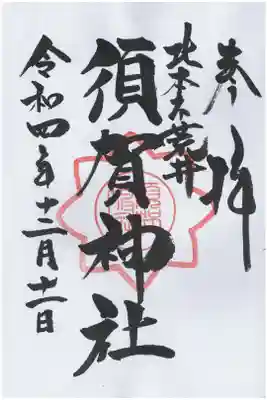 奉拝
北本市荒井
須賀神社
令和四年十二月十一日